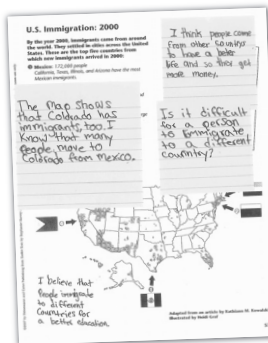 U.S. Immigration: 2000
By the year 2000, immigrants came from around
the world. They settled in cities across the United
States. These are the top five countries from
which new immigrants arrived in 2000:
Mexico: 173,000 people
California, Texas, Illinois, and Arizona have the most
Mexican immigrants.
I think people come
from other countrys
to have a beter
life and so they get
more money.
The Map shows
that Colorado has
immigrants, too. I
know that many
people move to
Colorado from Mexico.
Is it difficult
for a person
to immigrate
to a different
country?
I believe that
People immigrate
to different
Countries for
a better education.
Adapted from an article by Kathleen M.
Illustrated by